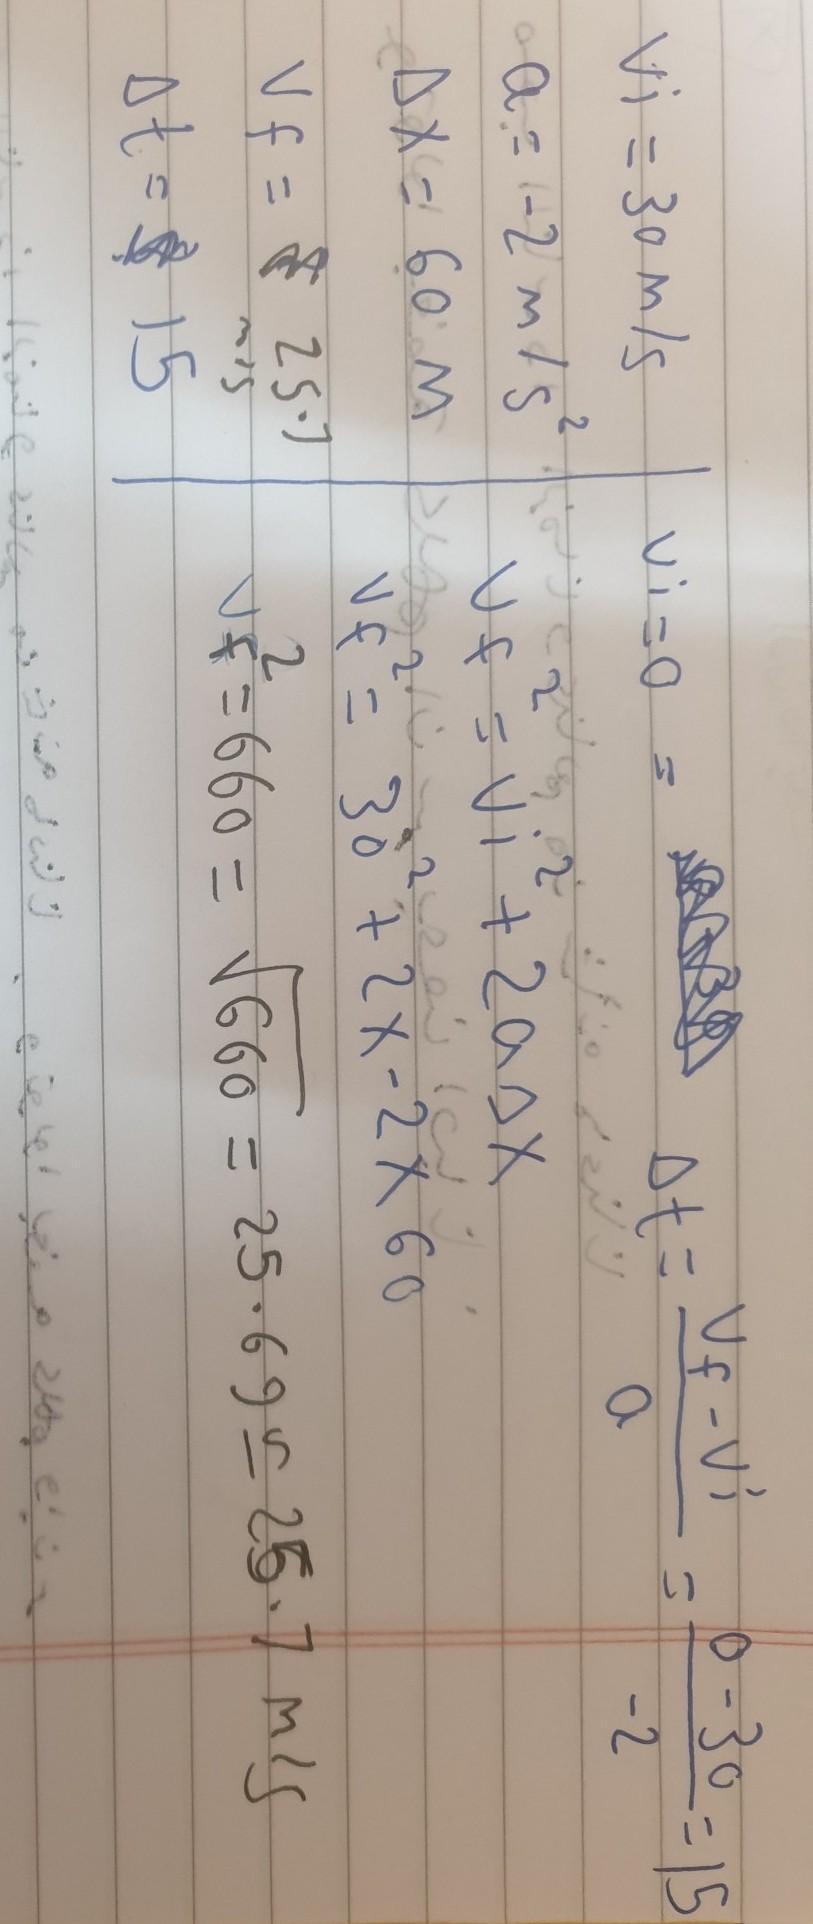 Vi = 30 m/s
a = -2 m/s²
Δx = 60 M
Vf = 25.7 m/s
Δt = 15
Vi = 0 = Δt = (Vf - Vi)/a = (0 - 30)/-2 = 15
Vf² = Vi² + 2aΔx
Vf² = 30² + 2x-2x60
Vf² = 660 = √660 = 25.69 ≃ 25.7 m/s